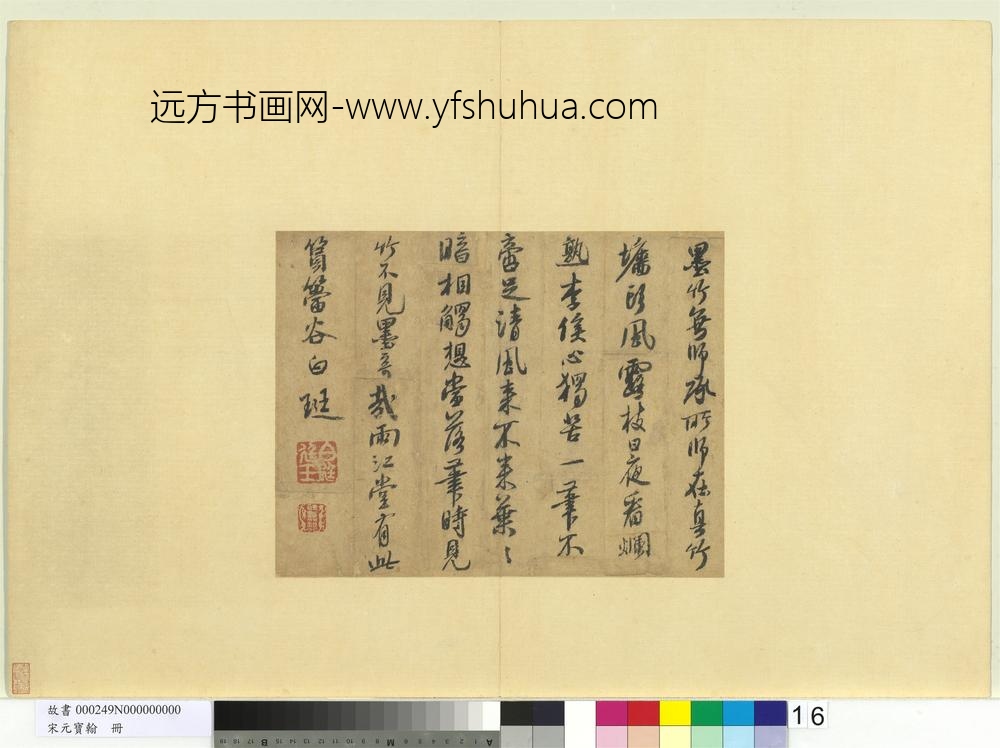 远方书画网-www.yfshuhua.com
墨竹無師承所師在真竹
墻頭風露枝日夜看爛
熟李侯心獨苦一筆不
啻足清風來不來葉〻
暗相觸想當落筆時見
竹不見墨奇哉兩江堂有此
篔簹谷白珽
故書 000249N000000000
宋元寶翰 冊
16